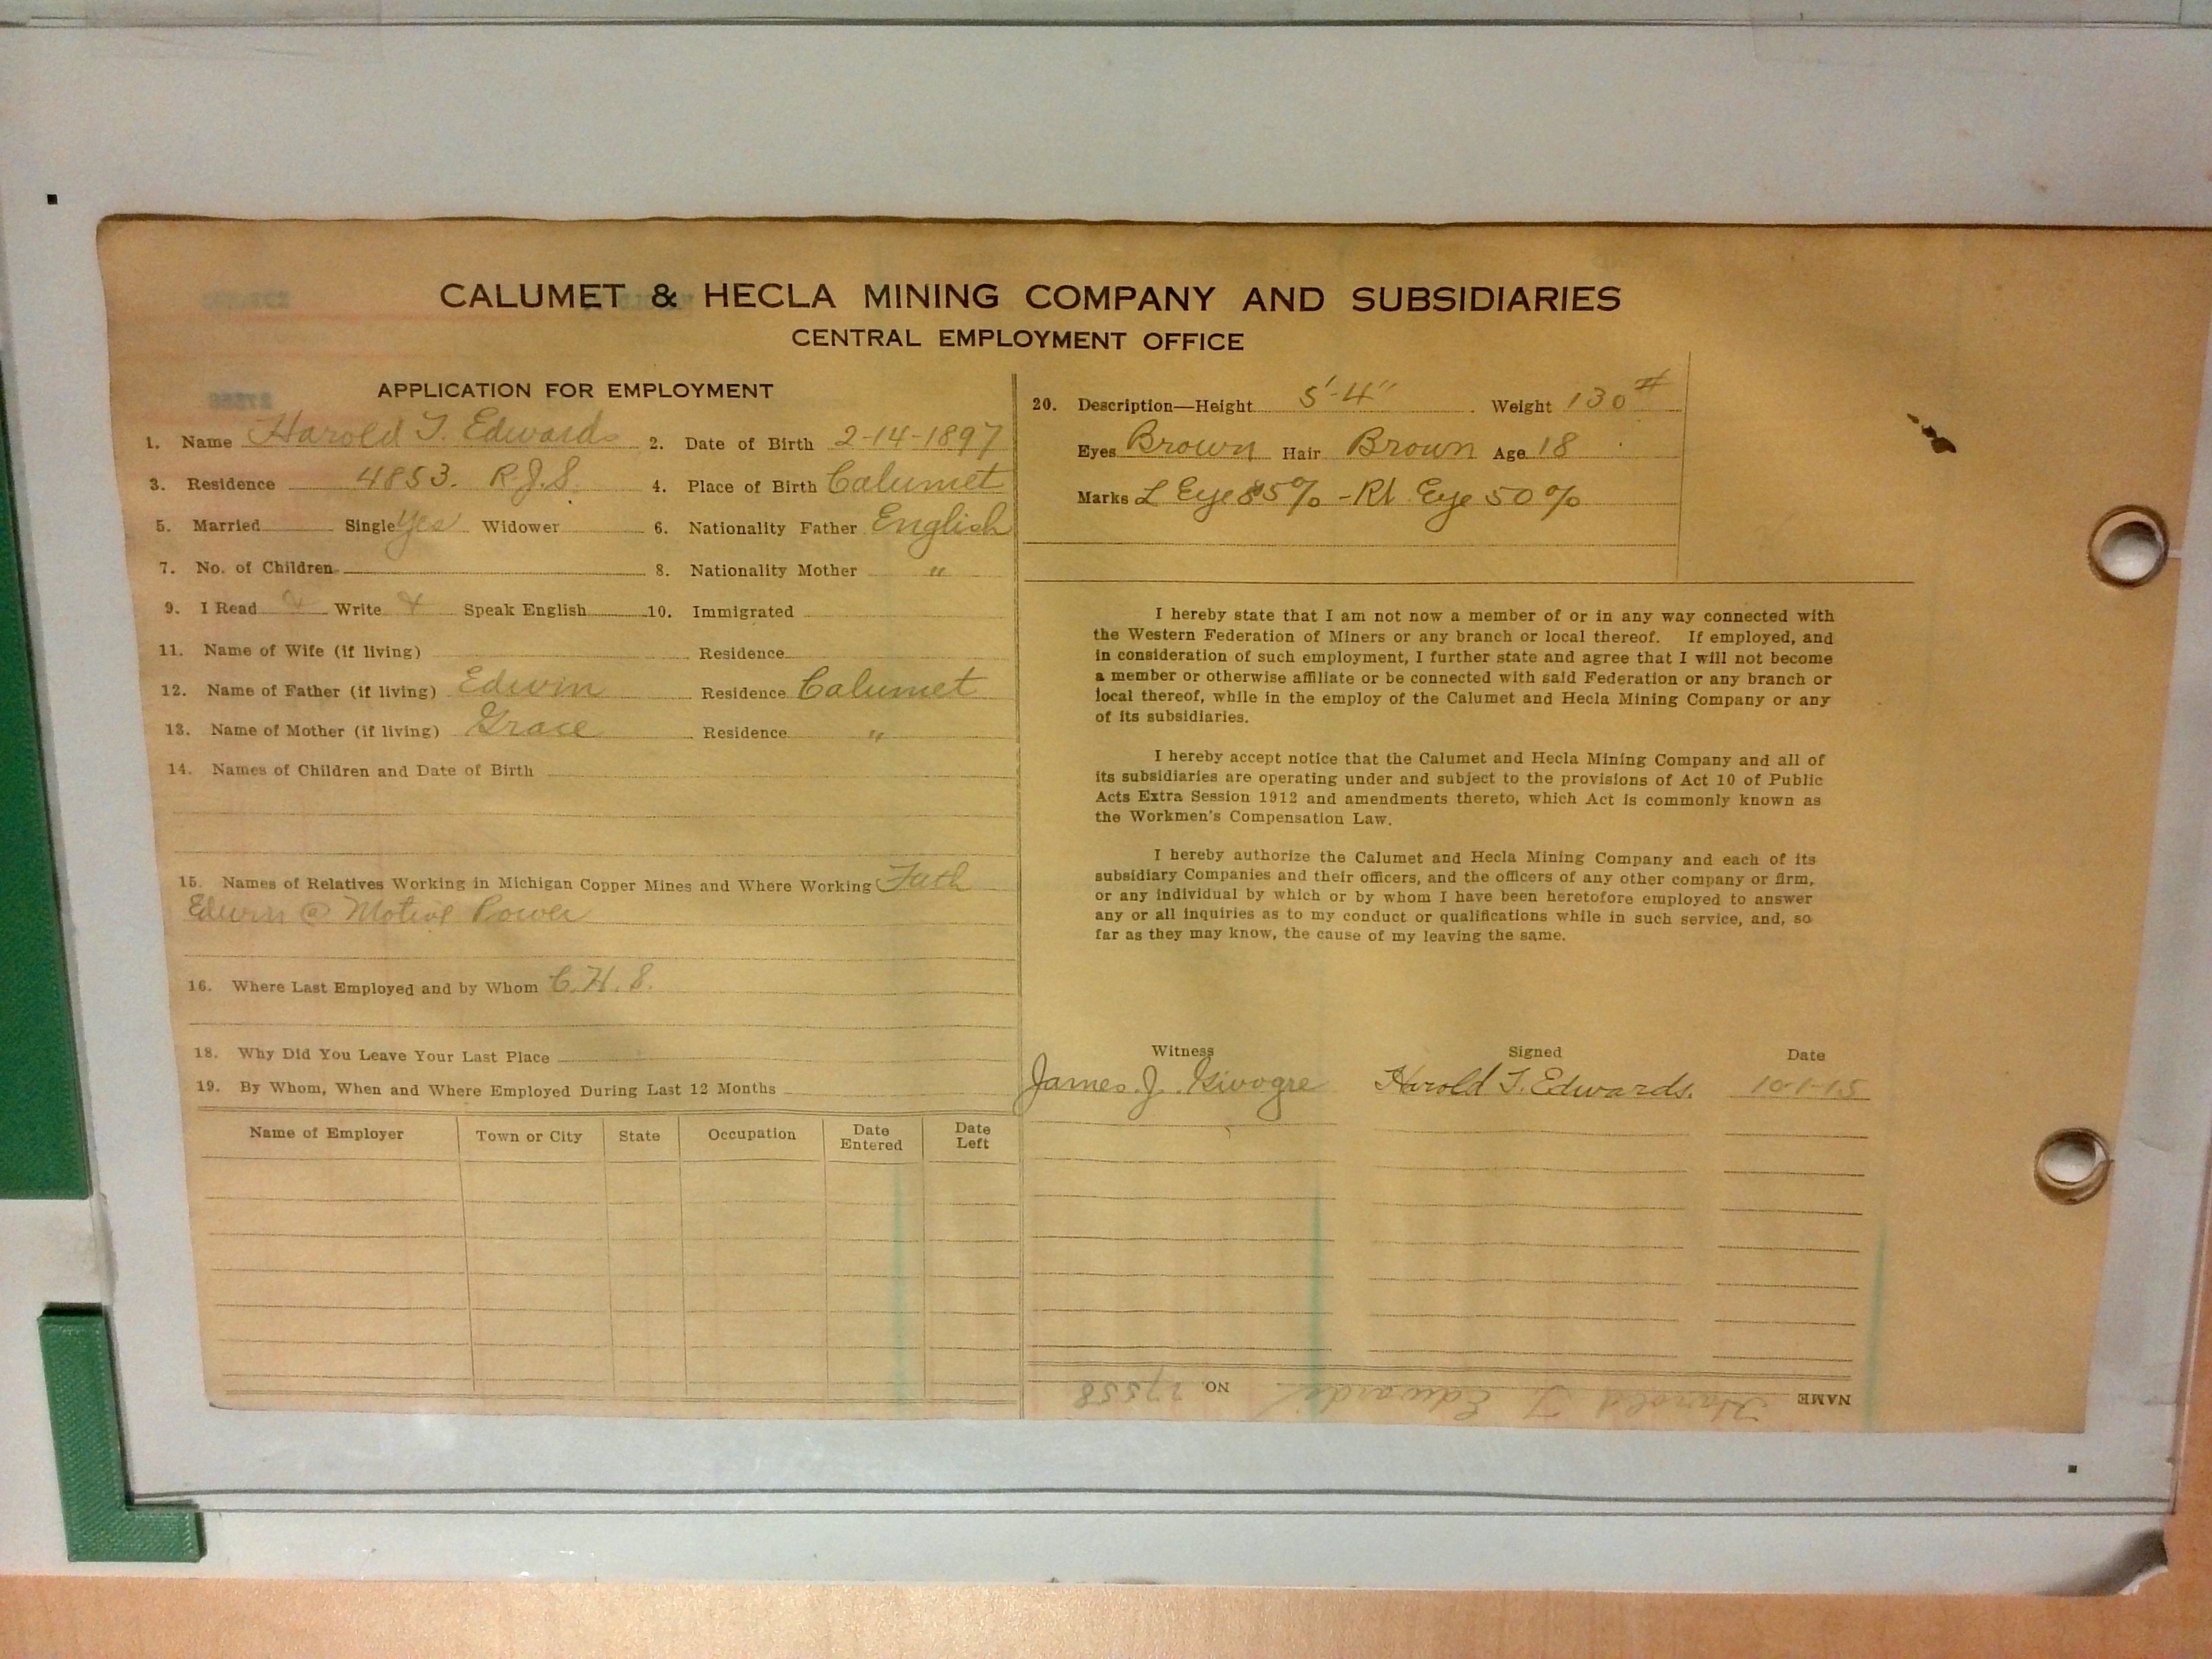 CALUMET & HECLA MINING COMPANY AND SUBSIDIARIES
CENTRAL EMPLOYMENT OFFICE
APPLICATION FOR EMPLOYMENT
1. Name Harold T. Edwards 2. Date of Birth 2-14-1897
3. Residence 4853. R.J.S. 4. Place of Birth Calumet
5. Married Single Yes Widower 6. Nationality Father English
7. No. of Children 8. Nationality Mother "
9. I Read Write Speak English 10. Immigrated
11. Name of Wife (if living) Residence
12. Name of Father (if living) Edwin Residence Calumet
13. Name of Mother (if living) Grace Residence "
14. Names of Children and Date of Birth
15. Names of Relatives Working in Michigan Copper Mines and Where Working Fath
Edwin @ Motive Power
16. Where Last Employed and by Whom C.H.S.
18. Why Did You Leave Your Last Place
19. By Whom, When and Where Employed During Last 12 Months
Name of Employer Town or City State Occupation Date Entered Date Left
20. Description—Height 5'-4" Weight 130#
Eyes Brown Hair Brown Age 18
Marks L Eye 85% - Rt Eye 50%
I hereby state that I am not now a member of or in any way connected with
the Western Federation of Miners or any branch or local thereof. If employed, and
in consideration of such employment, I further state and agree that I will not become
a member or otherwise affiliate or be connected with said Federation or any branch or
local thereof, while in the employ of the Calumet and Hecla Mining Company or any
of its subsidiaries.
I hereby accept notice that the Calumet and Hecla Mining Company and all of
its subsidiaries are operating under and subject to the provisions of Act 10 of Public
Acts Extra Session 1912 and amendments thereto, which Act is commonly known as
the Workmen's Compensation Law.
I hereby authorize the Calumet and Hecla Mining Company and each of its
subsidiary Companies and their officers, and the officers of any other company or firm,
or any individual by which or by whom I have been heretofore employed to answer
any or all inquiries as to my conduct or qualifications while in such service, and, so
far as they may know, the cause of my leaving the same.
Witness Signed Date
James J. Harold T. Edwards. 10-1-15
NAME Harold T. Edwards NO. 27558